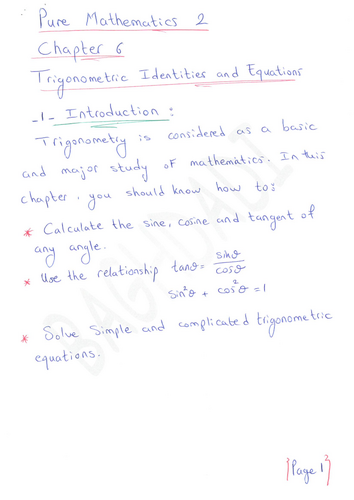 Pure Mathematics 2
Chapter 6
Trigonometric Identities and Equations
-1- Introduction :
Trigonometry is considered as a basic
and major study of mathematics. In this
chapter, you should know how to:
* Calculate the sine, cosine and tangent of
any angle.
* Use the relationship tanθ = sinθ / cosθ
sin²θ + cos²θ = 1
* Solve simple and complicated trigonometric
equations.
Page 1